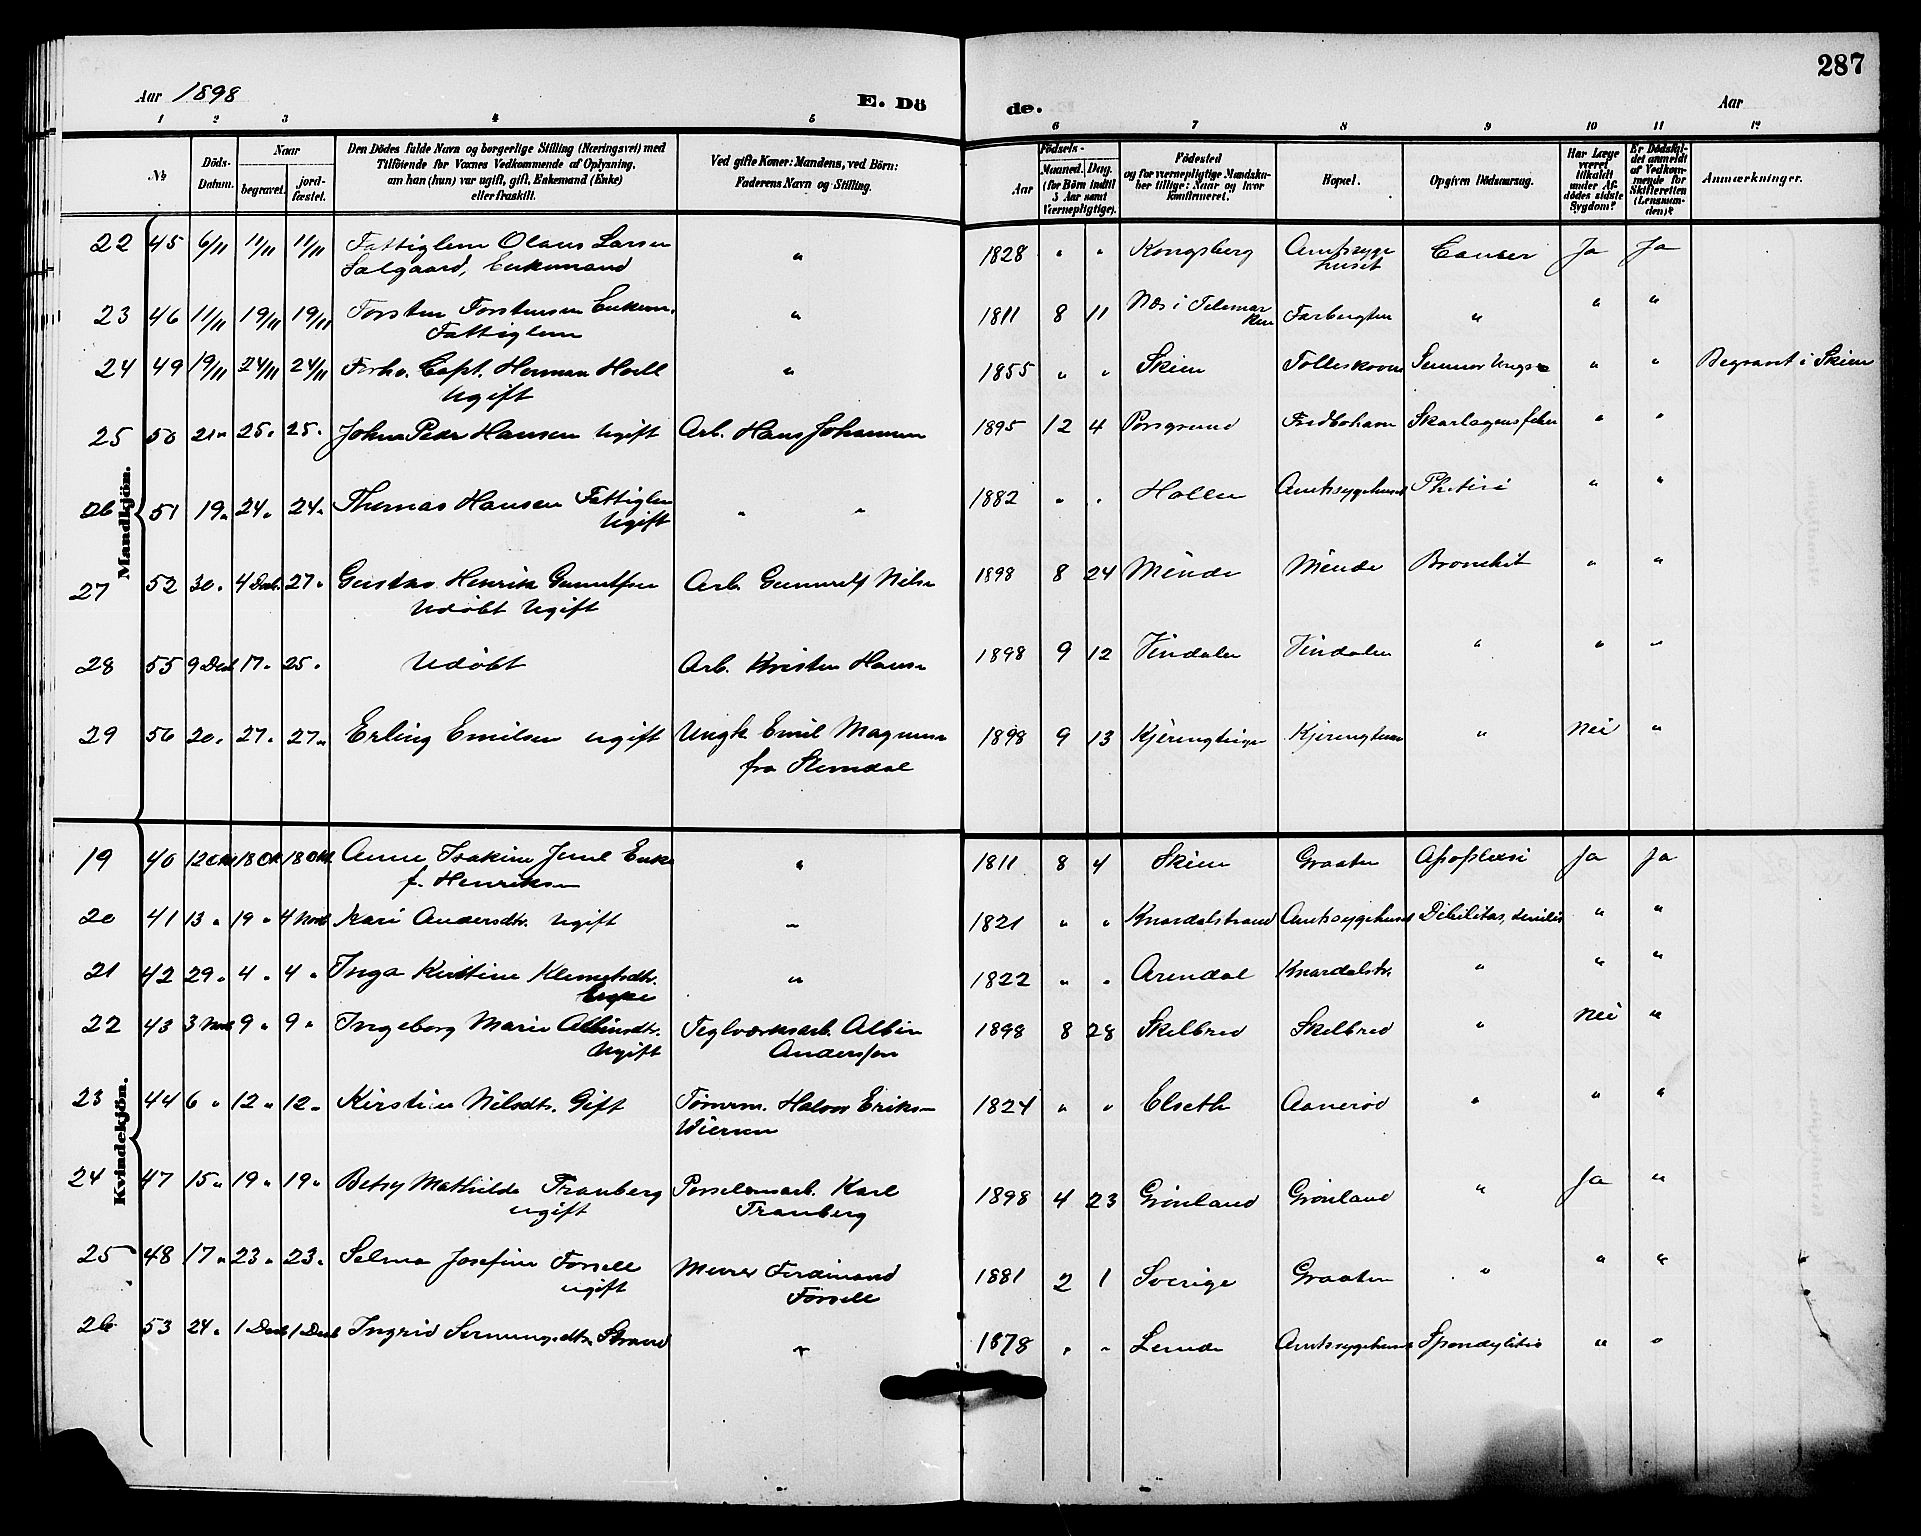 287
Aar 1898
E. Dö
de.
Aar
1 2 3 4 5 6 7 8 9 10 11 12
№
Döds-
Datum.
Naar
begravet.
jord-
fæstet.
Den Dödes fulde Navn og borgerlige Stilling (Næringsvei) med
Tilföiende for Voxnes Vedkommende af Oplysning,
om han (hun) var ugift, gift, Enkemand (Enke)
eller fraskilt.
Ved gifte Koner: Mandens, ved Börn:
Faderens Navn og Stilling.
Födsels-
Aar
Maaned. Dag.
(for Börn indtil
5 Aar samt
Værnepligtige).
Födested
og for værnepligtige Mandska-
ber tillige: Naar og hvor
konfirmeret.
Bopæl.
Opgiven Dödsaarsag.
Har Læge
været
tilkaldt
under Af-
dödes sidste
Sygdom?
Er Dödsfal-
det anmeldt
af Vedkom-
mende for
Skifteretten
(Lensman-
den)?
Anmærkninger.
Mandkjön.
22 45 6/11 11/11 11/11 Fattiglem Olaus Larsen " 1828 " " Kongsberg Amtssyge Cancer Ja Ja
Salgaard, Enkemand huset
23 46 11/11 19/11 19/11 Torsten Torstensen Enkem. " 1811 8 11 Næs i Telemar " " "
Fattiglem ken
24 49 19/11 24/11 24/11 Forhv. Capt. Herman Hoell " 1855 " " Skien " " Begravet i Skien
Ugift
25 50 21" 25" 25" Johan Peder Hansen Ugift Arb. Hans Johannsen 1895 12 4 Porsgrund Skarlagensfeber " "
26 51 19" 24" 24" Thomas Hansen Fattiglem " " 1882 " " Hollen Amtssygehuset " "
Ugift
27 52 30" 4 Decb. 27" Gustav Henrik Ganulfsen Arb. Nilsn 1898 8 24 Mende Mende Bronchit " "
Udöbt Ugift
28 55 9 Decb 17" 25" Udöbt Arb. Kristen Hansn 1898 9 12 " " "
29 56 20" 27" 27" Erling Emilsen ugift Ungk Emil Magnusn 1898 9 13 " Nei "
fra Slemdal
Kvindekjön.
19 40 12 Okt 18 Okt 18 Okt. Anne Enke " 1811 8 4 Skien Graaten Apoplexi Ja Ja
f. Henriksn
20 41 13 " 19 " 4 Novb Kari Andersdtr. Ugift " 1821 " " Knardalstrand Amtssygehuset Debilitas, senilis " "
21 42 29 " 4 " 4 " Inga Kirstine Klemetsdtr. " 1822 " " Arendal Knardalstr. " " "
Enke
22 43 3 Novb 9 " 9 " Ingeborg Marie Albinsdtr. Teglværksarb. Albin 1898 8 28 Skelbred Skelbred " Nei "
Ugift Andersson
23 44 6 " 12 " 12 " Kirstine Nilsdtr. Gift Tömrm. Halvor Eriksn 1824 " " Elseth Aanerød " " "
24 47 15 " 19 " 19 " Betsy Mathilde Tranberg Porselænsarb. Karl 1898 4 23 Grönland Grönland " Ja "
ugift Tranberg
25 48 17 " 23 " 23 " Selma Josefine Forsell Murer Ferdinand 1881 2 1 Sverige Graaten " " "
ugift Forsell
26 53 24 " 1 Decb 1 Decb Ingrid Strand " 1878 " " Lunde Amtssygehuset Spondylitis " "